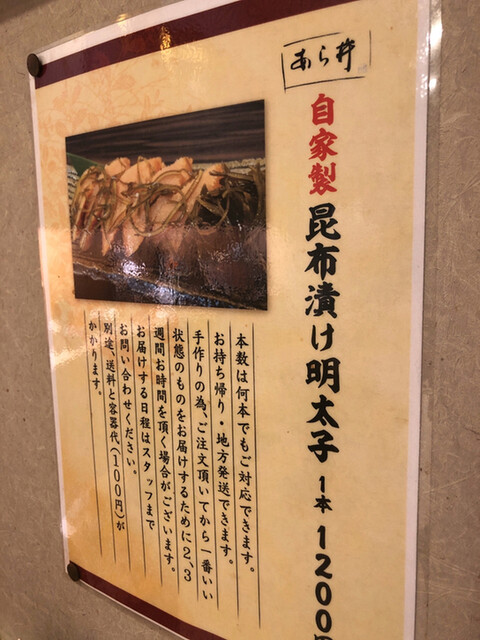 あら井
自家製 昆布漬け明太子 1本 1200円
本数は何本でもご対応できます。
お持ち帰り・地方発送できます。
手作りの為、ご注文頂いてから一番いい
状態のものをお届けするために2、3
週間お時間を頂く場合がございます。
お届けする日程はスタッフまで
お問い合わせください。
別途、送料と容器代(100円)が
かかります。